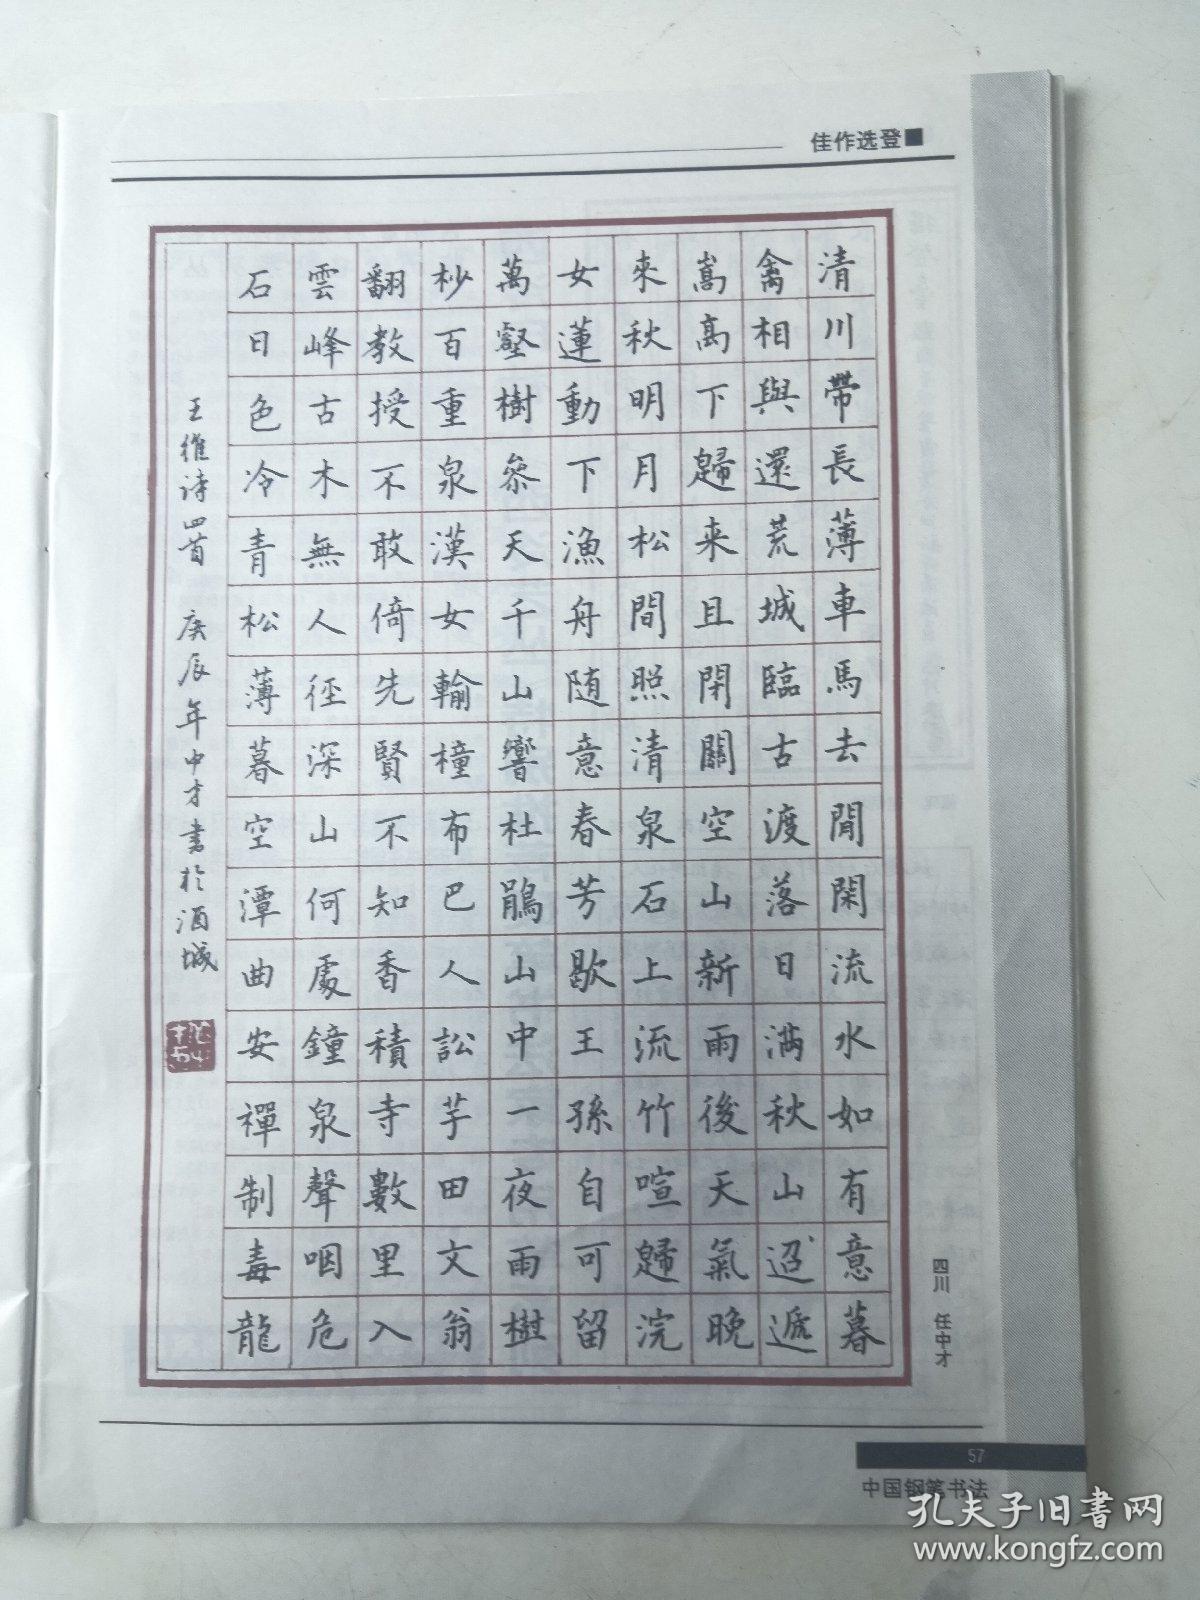 佳作选登■
清川帶長薄車馬去閒閑流水如有意暮
禽相與還荒城臨古渡落日满秋山迢遞
嵩高下歸来且閉關空山新雨後天氣晚
來秋明月松間照清泉石上流竹喧歸浣
女蓮動下漁舟随意春芳歇王孫自可留
萬壑樹參天千山響杜鵑山中一夜雨樹
杪百重泉漢女輸橦布巴人訟芋田文翁
翻教授不敢倚先賢不知香積寺數里入
雲峰古木無人徑深山何處鐘泉聲咽危
石日色冷青松薄暮空潭曲安禪制毒龍
王維诗四首 庚辰年中才書於酒城
四川 任中才
57
中国钢笔书法
孔夫子旧書网
www.kongfz.com